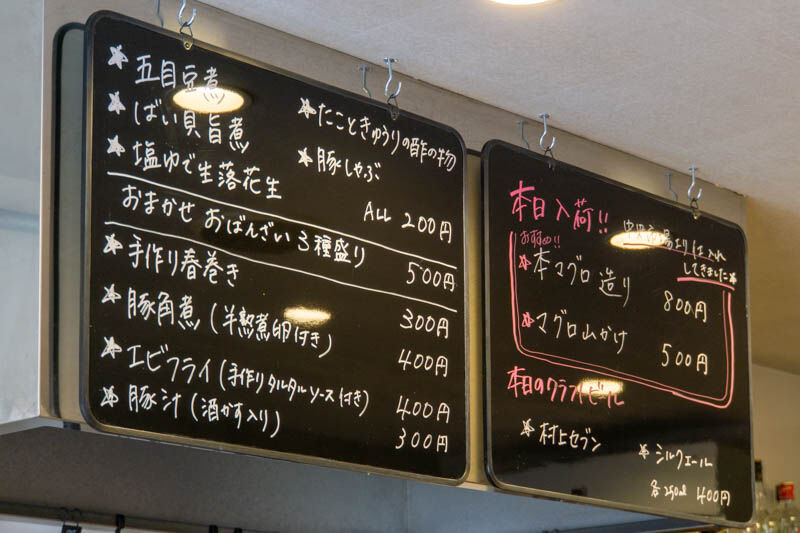 ★五目豆煮
★ばい貝旨煮
★塩ゆで生落花生
★たこときゅうりの酢の物
★豚しゃぶ
ALL 200円
おまかせ おばんざい 3種盛り 500円
★手作り春巻き 300円
★豚角煮(半熟煮卵付き) 400円
★エビフライ(手作りタルタルソース付き) 400円
★豚汁(酒かす入り) 300円
本日入荷!!
中央市場より仕入れ
してきました★
おすすめ!!
★本マグロ造り 800円
★マグロ山かけ 500円
本日のクラフトビール
★村上セブン
★シルクエール
各250ml 400円